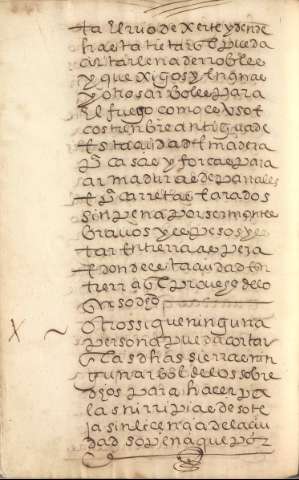 ta el rio de xerte y dende
hasta tietar q̃ pueda
cortar leña de robles
y quexigos y enzinas
y otros arboles para
el fuego como es uso e
costunbre antigua de
esta ciudad e madera
pª casas y forcas para
armaduras de parrales
e pª carretas e arados
sin pena por ser montes
brauos y espesos y es
tar en tierra aspera
e donde esta ciudad en
tierra q̃ l
uso d
X ~ Otrossi que ninguna
persona pueda cortar
en las dhas sierras nin
gun arbol de los sobre
dichos para hacer pa
las ni rripias de sote
ja sin licencia de la ciu
dad so pena que por